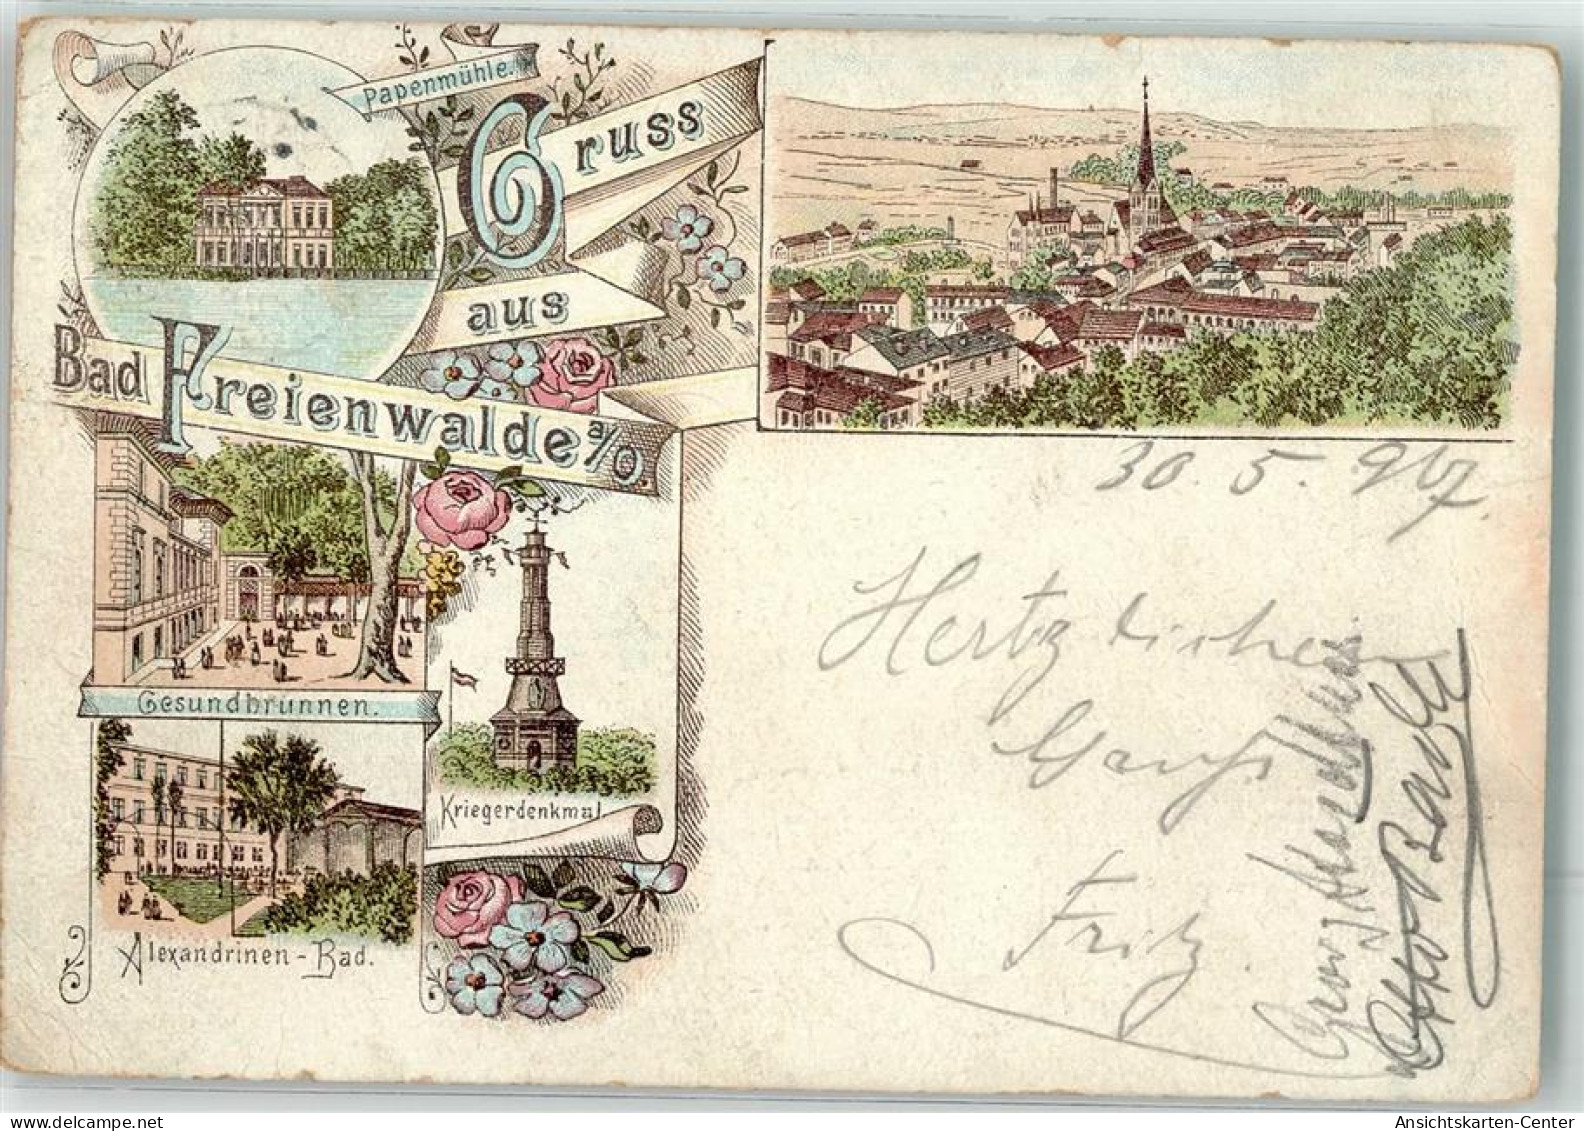 Papenmühle.
Gruss
aus
Bad Freienwalde a/O.
Gesundbrunnen.
Kriegerdenkmal
Alexandrinen-Bad.
30. 5. 97.
Hertzlichen
Fritz
Otto
Ansichtskarten-Center